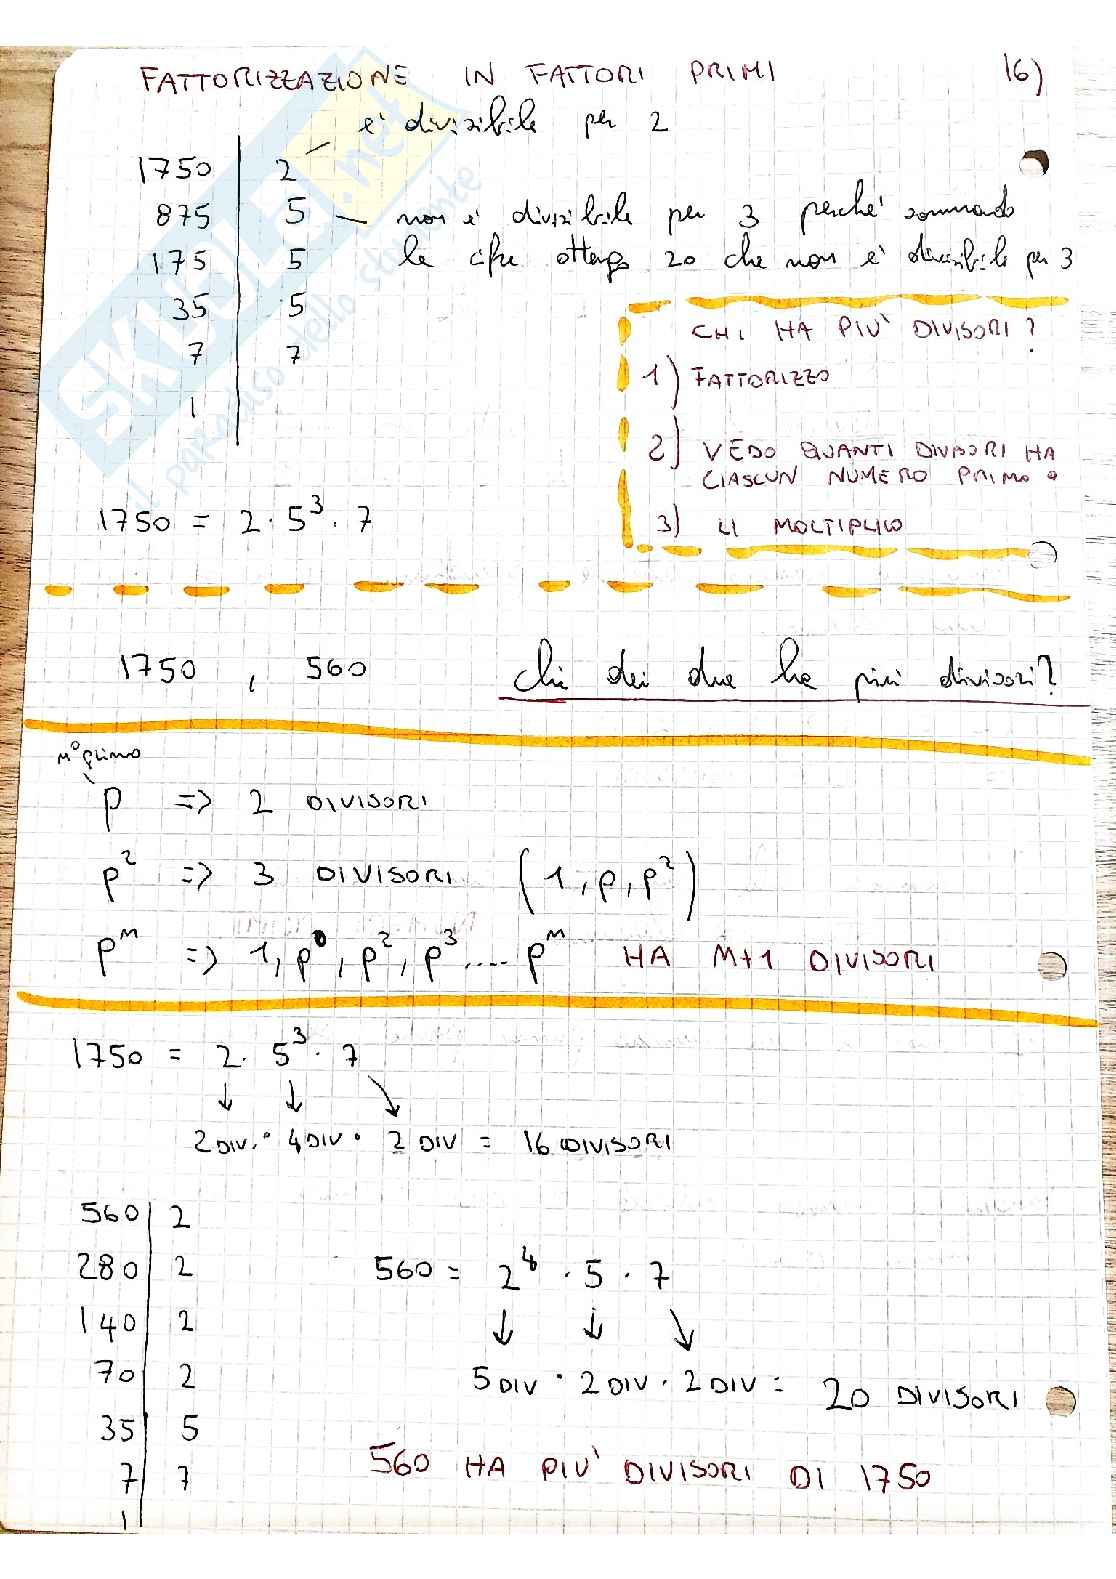 FATTORIZZAZIONE IN FATTORI PRIMI 16)
è divisibile per 2
1750 | 2
875 | 5 — non è divisibile per 3 perché sommando
175 | 5 le cifre ottengo 20 che non è divisibile per 3
35 | 5
7 | 7
1 |
CHI HA PIÙ DIVISORI?
1) FATTORIZZO
2) VEDO QUANTI DIVISORI HA
CIASCUN NUMERO PRIMO
3) LI MOLTIPLICO
1750 = 2 · 5³ · 7
1750 , 560 chi dei due ha più divisori?
n° primo
p => 2 DIVISORI
p² => 3 DIVISORI (1, p, p²)
pᵐ => 1, p⁰, p², p³, .... pᵐ HA M+1 DIVISORI
1750 = 2 · 5³ · 7
↓ ↓ ↘
2 DIV. · 4 DIV · 2 DIV = 16 DIVISORI
560 | 2
280 | 2 560 = 2⁴ · 5 · 7
140 | 2 ↓ ↓ ↘
70 | 2 5 DIV · 2 DIV · 2 DIV = 20 DIVISORI
35 | 5
7 | 7 560 HA PIÙ DIVISORI DI 1750
1 |
SKUOLA.net
il paradiso dello studente